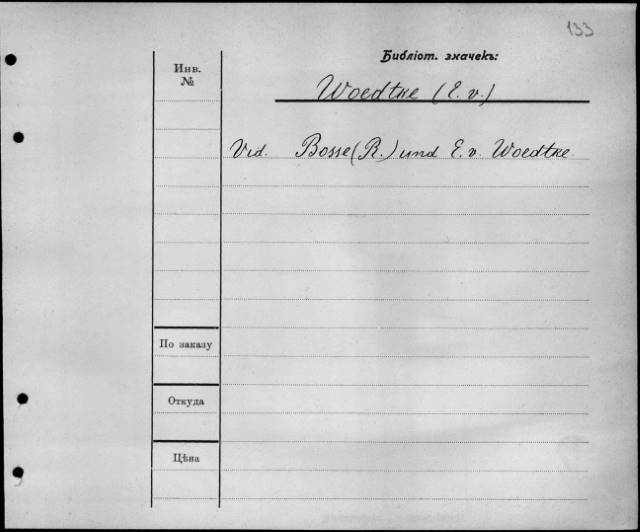 133
Библіот. значекъ:
Инв.
№
Woedtke (E. v.)
Vid. Bosse (R.) und E. v. Woedtke
По заказу
Откуда
Цѣна